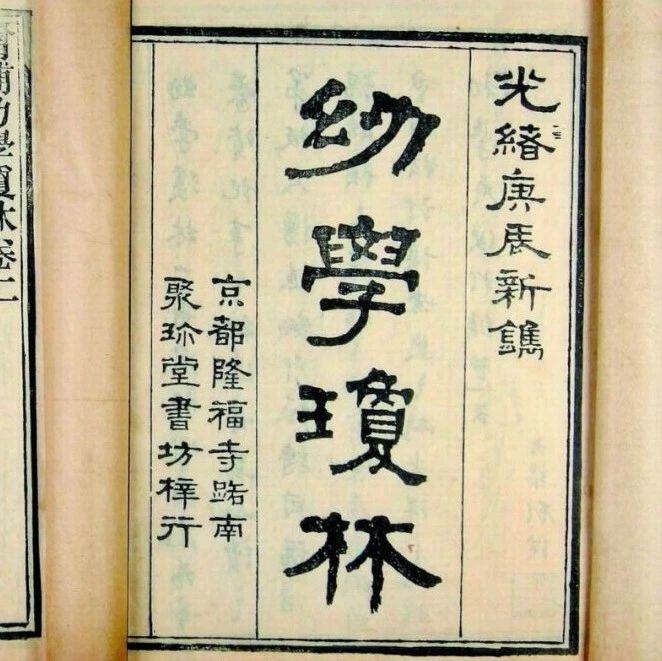 光緒庚辰新鐫
幼學瓊林
京都隆福寺路南
聚珍堂書坊梓行
增補幼學瓊林卷二